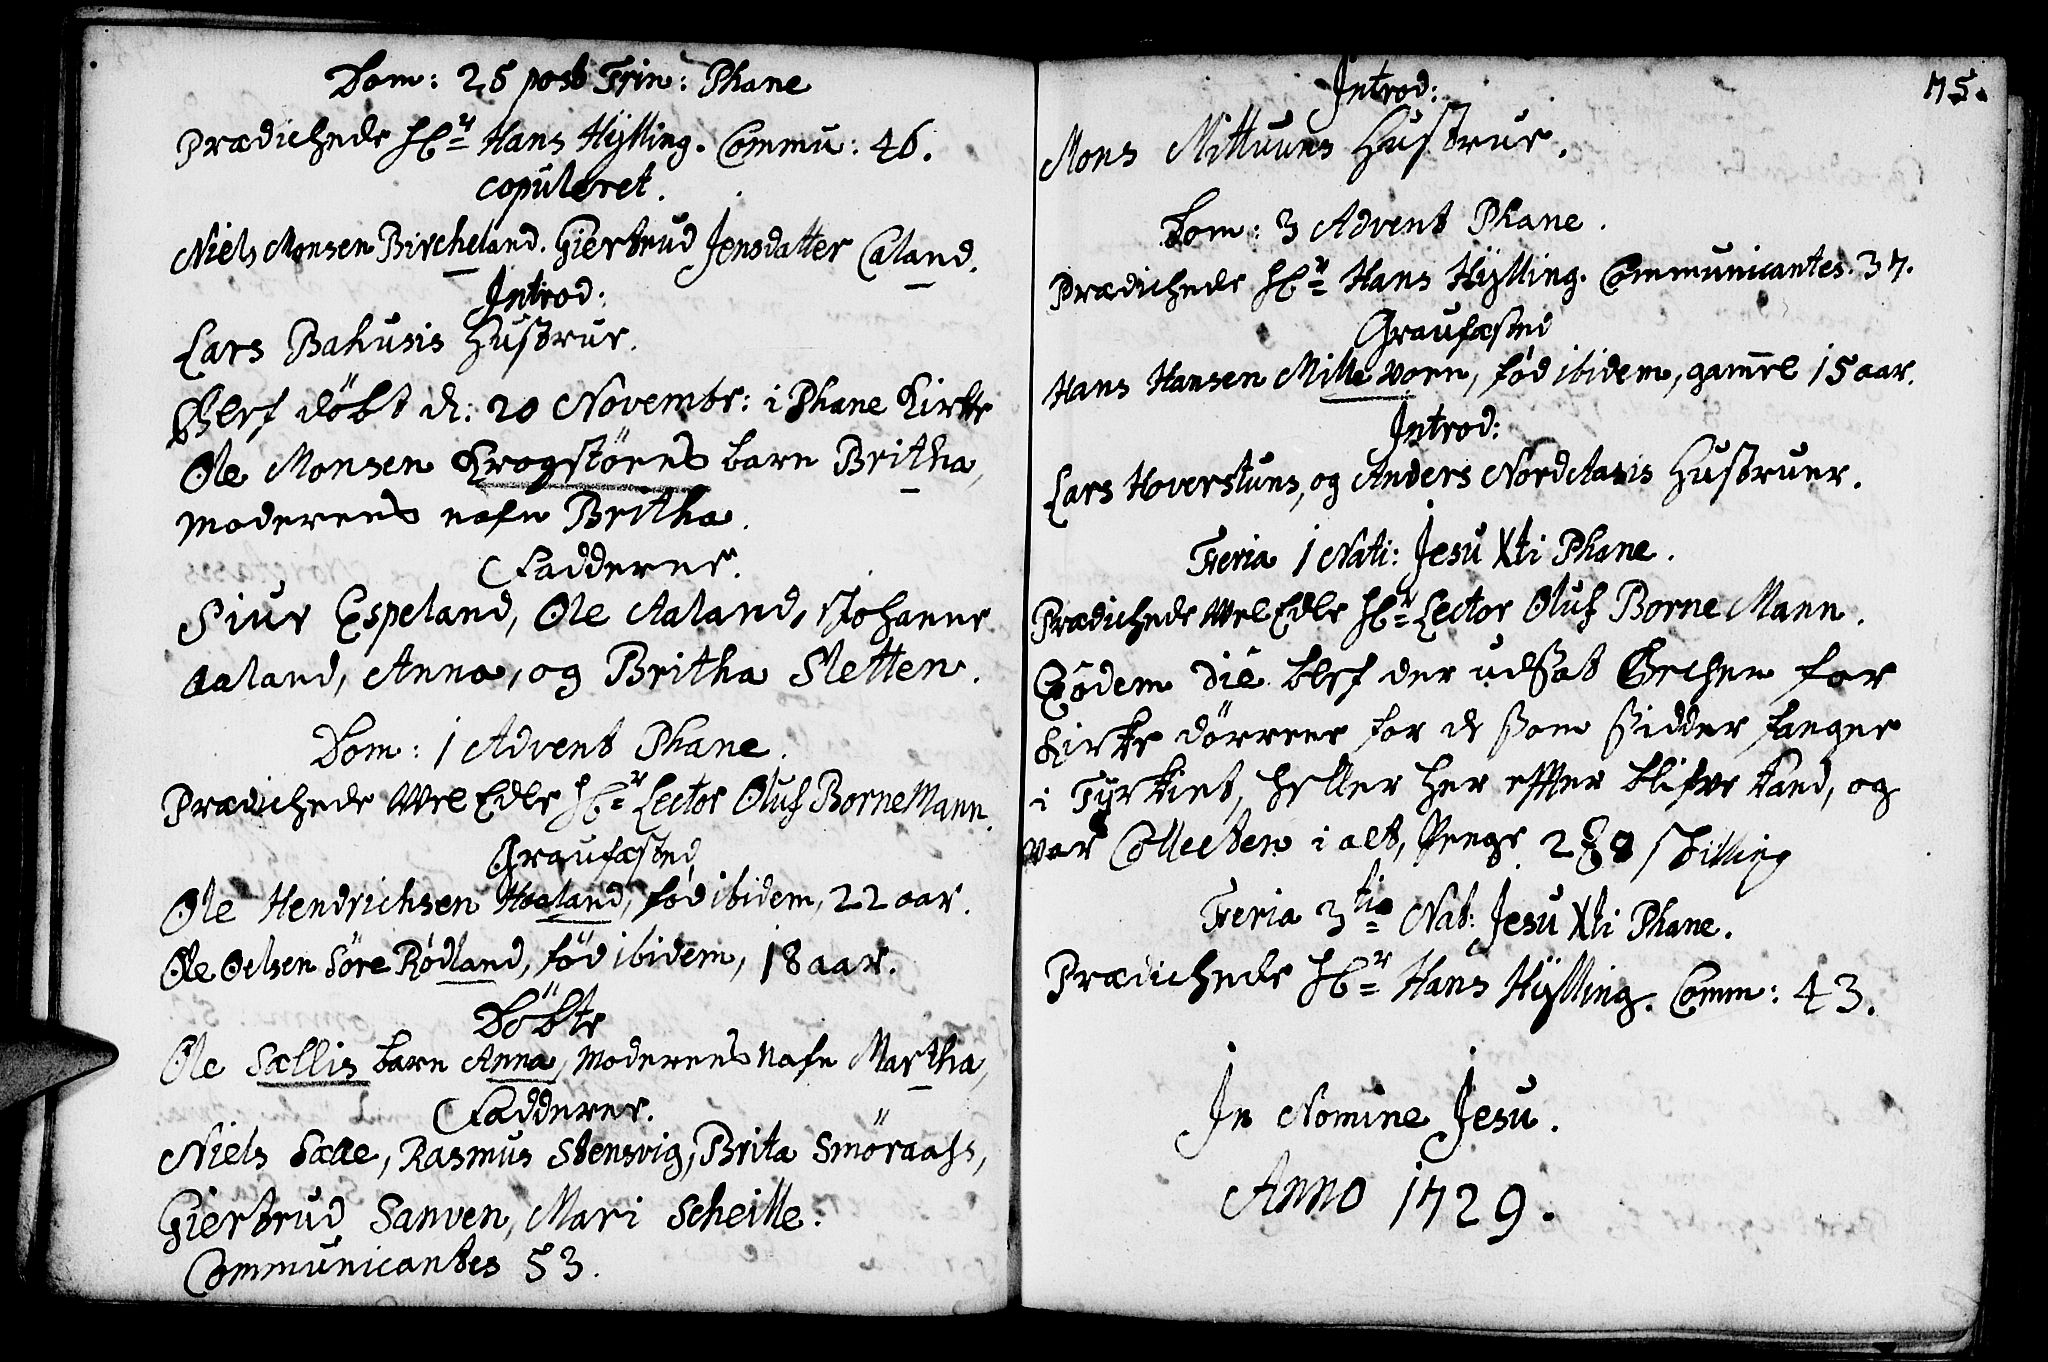 Dom: 25 post Trin: Phane
Prædichede Hr Hans Hÿlling. Commu: 46.
copuleret.
Niels Monsen Bircheland. Giertrud Jensdatter Caland.
Introd:
Lars Bahusis Hustrue.
Blef döbt d: 20 Novembr: i Phane Kirke
Ole Monsen Krogstöens barn Britha,
moderens nafn Britha.
Fadderne.
Siur Espeland, Ole Aaland, Johanne
Aaland, Anna, og Britha Sletten.
Dom: 1 Advent Phane.
Prædichede Wel Edle Hr Lector Oluf BorneMann.
Graufæsted
Ole Hendrichsen Haaland, föd ibidem, 22 aar.
Ole Oelsen Söre Rödland, föd ibidem, 18 aar.
Döbte
Ole Sællis barn Anna, moderens nafn Martha,
Fadderne.
Niels Sælle, Rasmus Stensvig, Brita Smöraass,
Giertrud Sanven, Mari Scheille.
Communicantes 53.
75.
Introd:
Mons Mittuuns Hustrue.
Dom: 3 Advent Phane.
Prædichede Hr Hans Hÿlling. Communicantes. 37.
Graufæsted
Hans Hansen Mille voen, föd ibidem, gamel 15 aar.
Introd:
Lars Hoverstuns, og Anders NordAasis Hustruer.
Feria 1 Nati: Jesu Xti Phane.
Prædichede Wel Edle Hr Lector Oluf Borne Mann.
die blef der udsat for
Kirke dörrene for de som sidder fangne
i Tyrkiet, heller her effter blifve kand, og
var Collecten i alt, Penge 2 8 skilling
Feria 3tia Nat: Jesu Xti Phane.
Prædichede Hr Hans Hÿlling. Comm: 43.
In Nomine Jesu.
Anno 1729.